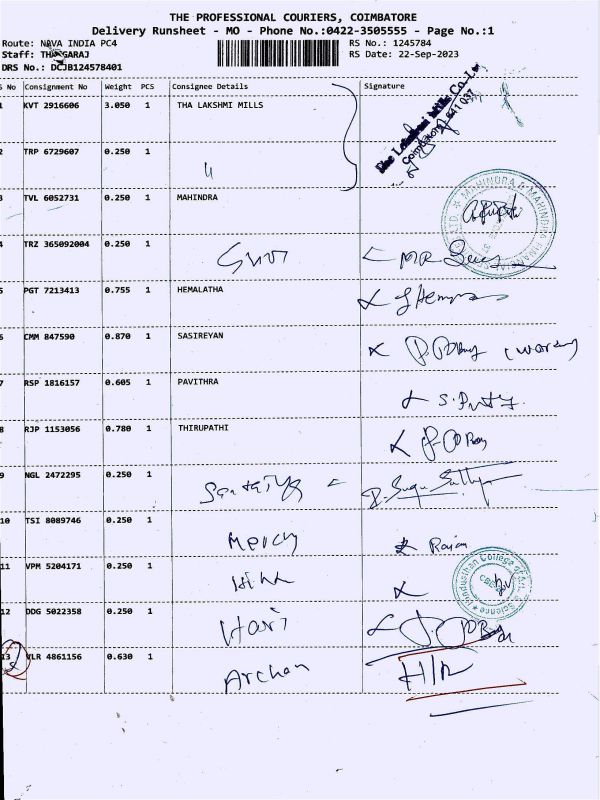 THE PROFESSIONAL COURIERS, COIMBATORE
Delivery Runsheet - MO - Phone No.:0422-3505555 - Page No.:1
Route: NAVA INDIA PC4 RS No.: 1245784
Staff: THANGARAJ RS Date: 22-Sep-2023
DRS No.: DCJB124578401
S No Consignment No Weight PCS Consignee Details Signature
1 KVT 2916606 3.050 1 THA LAKSHMI MILLS
The Lakshmi Mills Co. Ltd
Coimbatore 641 037
2 TRP 6729607 0.250 1 "
3 TVL 6052731 0.250 1 MAHINDRA
MAHINDRA & MAHINDRA FINANCIAL LTD.
4 TRZ 365092004 0.250 1
5 PGT 7213413 0.755 1 HEMALATHA
6 CMM 847590 0.870 1 SASIREYAN
7 RSP 1816157 0.605 1 PAVITHRA
8 RJP 1153056 0.780 1 THIRUPATHI
9 NGL 2472295 0.250 1
10 TSI 8089746 0.250 1 Mercy Rajan
11 VPM 5204171 0.250 1
Hindusthan College of Arts & Science
12 DDG 5022358 0.250 1 Hari
13 VLR 4861156 0.630 1 Archan